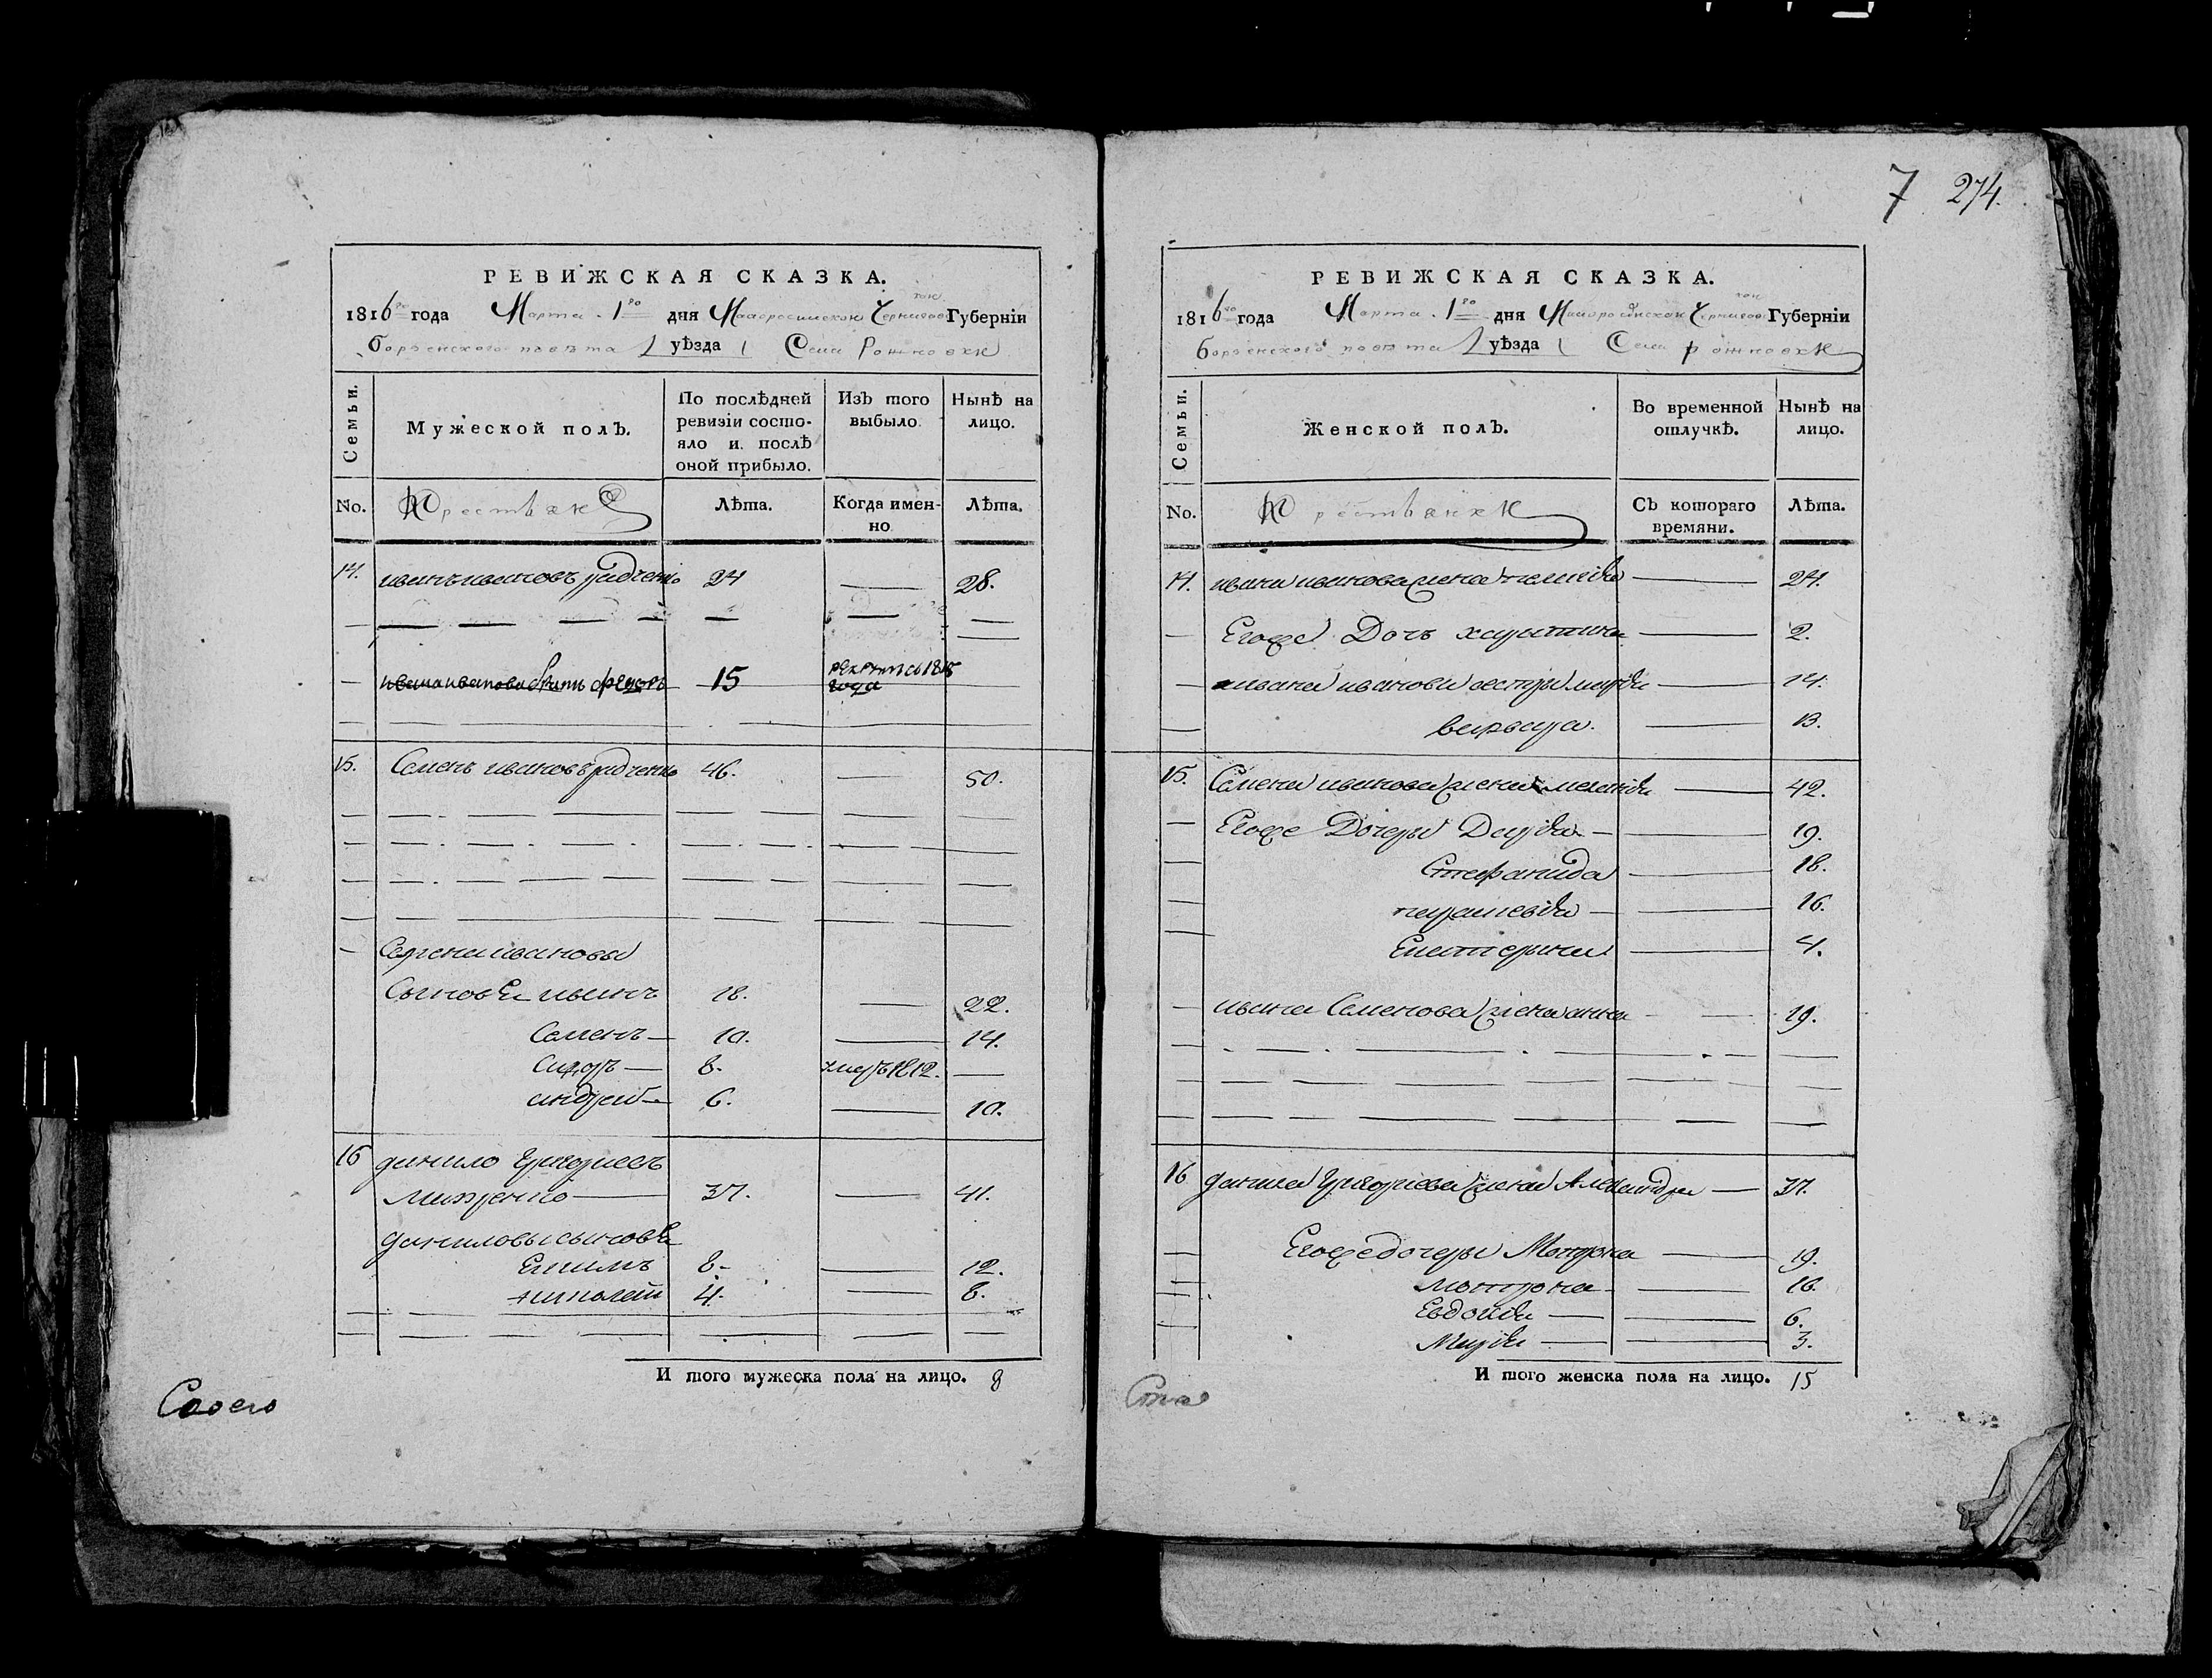 7 274.
РЕВИЖСКАЯ СКАЗКА.
1816го года Марта 1го дня Малоросийской Черниговской Губерніи
борзенского повѣта уѣзда Села Рожновки
Семьи.
Мужеской полЪ.
По послѣдней ревизіи состояло и послѣ оной прибыло.
ИзЪ того выбыло.
НынѣЪ на лицо.
No.
Крестьяне
Лѣта.
Когда именно
Лѣта.
14. иванъ ивановъ радченко 24 — 28.
— ивана иванова братъ федоръ 15 рекрутъ съ 1815 года
15. Семенъ ивановъ радченко 46. — 50.
— Семена иванова
Сыновья иванъ 18. — 22.
Семенъ — 10. — 14.
Сидоръ — 8. умеръ 1812. —
андрей — 6. — 10.
16 данило Григориевъ
— 37. — 41.
даниловы сыновья
Екимъ 8 — 12.
николай 4. — 8.
И того мужеска пола на лицо. 8
Своего
РЕВИЖСКАЯ СКАЗКА.
1816го года Марта 1го дня Малоросийской Черниговской Губерніи
борзенского повѣта уѣзда Села рожновки
Семьи.
Женской полЪ.
Во временной отлучкѣ.
Нынѣ на лицо.
No.
Крестьянки
СЪ котораго времяни.
Лѣта.
14. ивана иванова жена пелагея — 24.
— Егоже Дочь харитина — 2.
— ивана иванова сестры марья — 14.
— варвара. — 13.
15. Семена иванова жена меланья — 42.
— Егоже Дочеры Дарья — 19.
— Стефанида — 18.
— парасковья — 16.
— Екатерина — 4.
— ивана Семенова жена анна — 19.
16 данила Григориева жена Александра — 37.
— Егоже дочеры Мотрона — 19.
— мотрона — 16.
— Евдокия — 6.
Марья — 3.
И того женска пола на лицо. 15